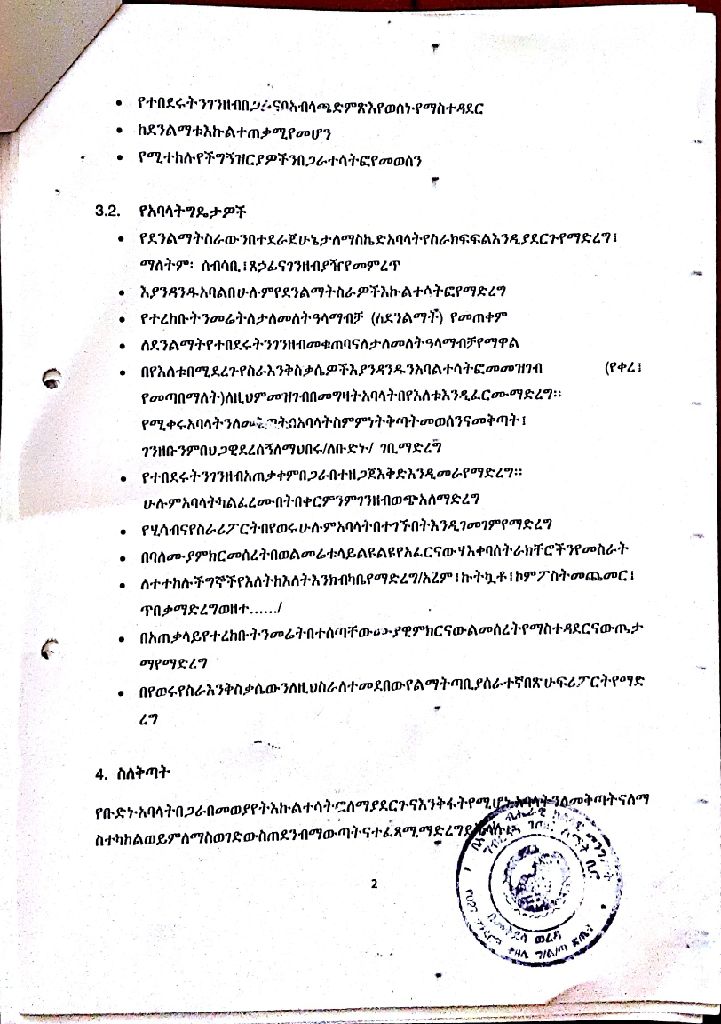 • የተበደሩትንገንዘብበጋራናበአብላጫድምጽእየወሰኑየማስተዳደር
• ከደንልማቱእኩልተጠቃሚየመሆን
• የሚተከሉየችግኝዝርያዎችንበጋራተሳትፎየመወሰን
3.2. የአባላትግዴታዎች
• የደንልማትስራውንበተደራጀሁኔታለማስኬድአባላትየስራክፍፍልእንዲያደርጉየማድረግ፤
ማለትም፡ ሰብሳቢ፤ጸኃፊናገንዘብያዥየመምረጥ
• እያንዳንዱአባልበሁሉምየደንልማትስራዎችእኩልተሳትፎየማድረግ
• የተረከቡትንመሬትለታለመለትዓላማብቻ (ለደንልማት) የመጠቀም
• ለደንልማትየተበደሩትንገንዘብመቁጠባናለታለመለትዓላማብቻየማዋል
• በየእለቱበሚደረጉየስራእንቅስቃሴዎችእያንዳንዱንአባልተሳትፎመመዝገብ (የቀረ፤
የመጣበማለት)ለዚህምመዝገብበመግዛትአባላትበየእለቱእንዲፈርሙማድረግ።
የሚቀሩአባላትንለመቅጣትበአባላትስምምነትቅጣትመወሰንናመቅጣት፤
ገንዘቡንምበህጋዊደረሰኝለማህበሩ/ለቡድኑ/ ገቢማድረግ
• የተበደሩትንገንዘብአጠቃቀምበጋራበተዘጋጀእቅድእንዲመራየማድረግ።
ሁሉምአባላትካልፈረሙበትበቀርምንምገንዘብወጭአለማድረግ
• የሂሳብናየስራሪፖርትበየወሩሁሉምአባላትበተገኙበትእንዲገመገምየማድረግ
• በባለሙያምክርመሰረትበወልመሬተላይልዩልዩየአፈርናውሃእቀባስትራክቸሮችንየመስራት
• ለተተከሉችግኞችየእለትከእለትእንክብካቤየማድረግ/አረም፤ኩትኳቶ፤ኮምፖስትመጨመር፤
ጥበቃማድረግወዘተ....../
• በአጠቃላይየተረከቡትንመሬትበተሰጣቸውሙያዊምክርናውልመሰረትየማስተዳደርናውጤታ
ማየማድረግ
• በየወሩየስራእንቅስቃሴውንለዚህስራለተመደበውየልማትጣቢያሰራተኛበጽሁፍሪፖርትየማድ
ረግ
4. ስለቅጣት
የቡድኑአባላትበጋራበመወያየትእኩልተሳትፎለማያደርጉናእንቅፋትየሚሆኑአባላትንለመቅጣትናለማ
ስተካከልወይምለማስወገድውስጠደንብማውጣትናተፈጻሚማድረግ
2
ወረዳ